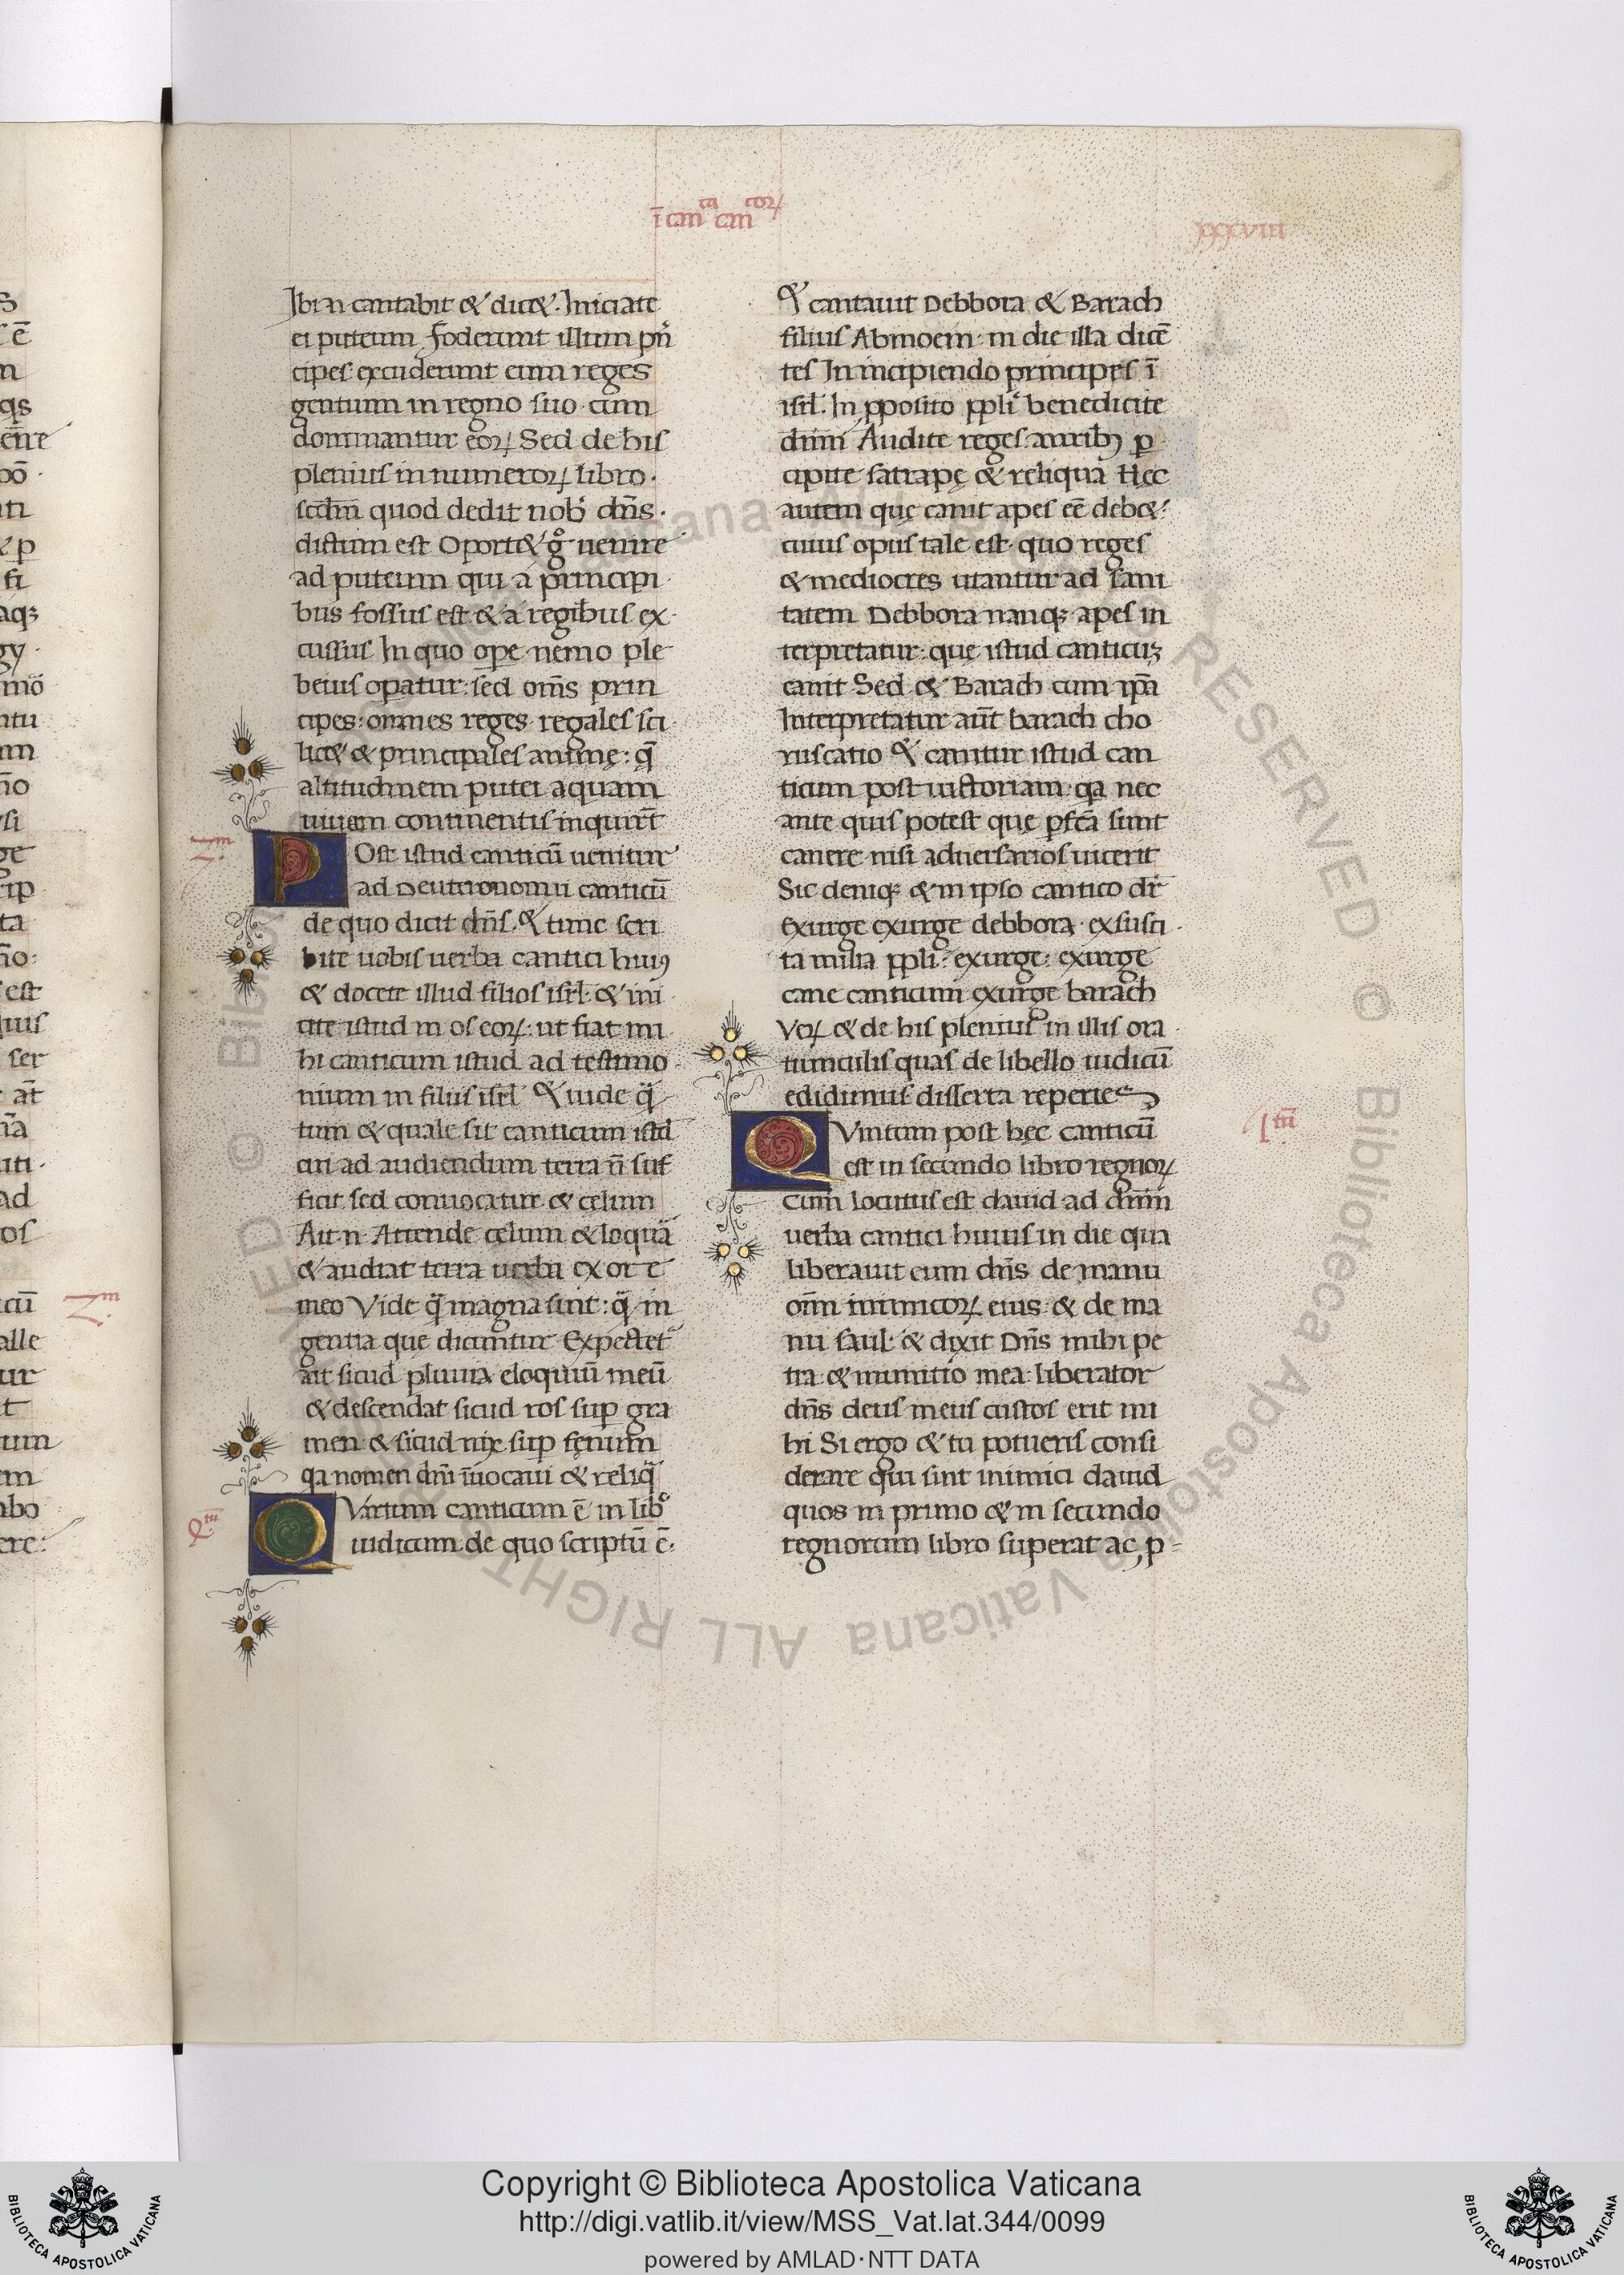 i can^ca can^corꝝ
xxxviii
Ibi n cantabit & dic&. Iniciate
ei puteum foderunt illum prī
cipes excuderunt eum reges
gentium in regno suo cum
dominantur eoꝝ Sed de his
plenius in numeroꝝ libro.
scdm quod dedit nob dns.
dictum est Oport& g uenire
ad puteum qui a principi
bus fossus est & a regibus ex
cussus In quo ope nemo ple
beius opatur: sed oms prin
cipes: omnes reges regales sci
lic& & principales anime: q̄
altitudinem putei aquam
uiuam continentis inquirt̄
3.m
Post istud canticū uenitur
ad Deuteronomii canticū
de quo dicit dn̄s. & tunc scri
bite uobis uerba cantici huiꝰ
& docete illud filios isrl & ini
cite istud in os eoꝝ: ut fiat mi
hi canticum istud ad testimo
nium in filiis isrl & uide q̄
tum & quale sit canticum istd
cui ad audiendum terra n̄ suf
ficit sed conuocatur & celum
Ait n Attende celum & loquā
& audiat terra uerba ex ore
meo Vide q̄ magna sint: q̄ in
gentia que dicuntur Expectet
at sicud pluuia eloquiū meū
& descendat sicud ros sup gra
men & sicud nix sup fenum
qa nomen dni īuocaui & reliq̄
Qtu
QVartum canticum ē in libo
iudicum de quo scriptū ē.
& cantauit Debbora & Barach
filius Abinoem in die illa dicē
tes In incipiendo principes ī
isrl. In pposito ppli benedicite
dnm Audite reges auribꝫ p
cipite satrape & reliqua Hec
autem que canit apes eē deb&:
cuius opus tale est quo reges
& mediocres utantur ad sani
tatem Debbora nanqꝫ apes in
terpretatur: que istud canticuꝫ
canit Sed & Barach cum ipā
Interpretatur aūt barach cho
ruscatio & canitur istud can
ticum post uictoriam qa nec
ante quis potest que pfcā sunt
canere nisi aduersarios uicerit
Sic deniqꝫ & in ipso cantico dr̄
exurge exurge debbora exsusci
ta milia ppli: exurge: exurge
cane canticum exurge barach
Veꝝ & de his plenius in illis ora
tiunculis quas de libello iudicū
edidimus disserta reperies
Vtū
QVintum post hec canticū
est in secundo libro regnoꝝ
Cum locutus est dauid ad dnm
uerba cantici huius in die qua
liberauit eum dn̄s de manu
om̄ inimicoꝝ eius & de ma
nu saul & dixit Dn̄s mihi pe
tra & munitio mea liberator
dn̄s deus meus custos erit mi
hi Si ergo & tu potueris consi
derare qui sint inimici dauid
quos in primo & in secundo
regnorum libro superat ac p
Copyright © Biblioteca Apostolica Vaticana
http://digi.vatlib.it/view/MSS_Vat.lat.344/0099
powered by AMLAD·NTT DATA
BIBLIOTECA APOSTOLICA VATICANA
BIBLIOTECA APOSTOLICA VATICANA